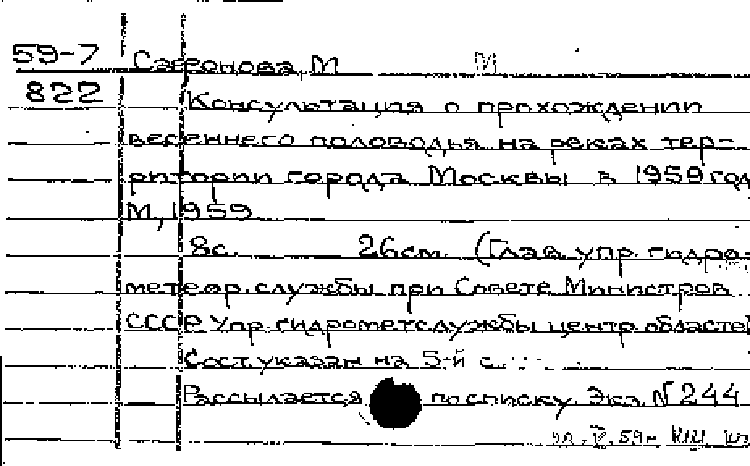 59-7 Сафронова, М М
822 Консультация о прохождении
весеннего половодья на реках тер-
ритории города Москвы в 1959 год
М, 1959
8с. 26см. (Глав. упр. гидро-
метеор. службы при Совете Министров
СССР Упр. гидрометслужбы центр. областей
Сост. указан на 5-й с.
Рассылается по списку. Экз. №244